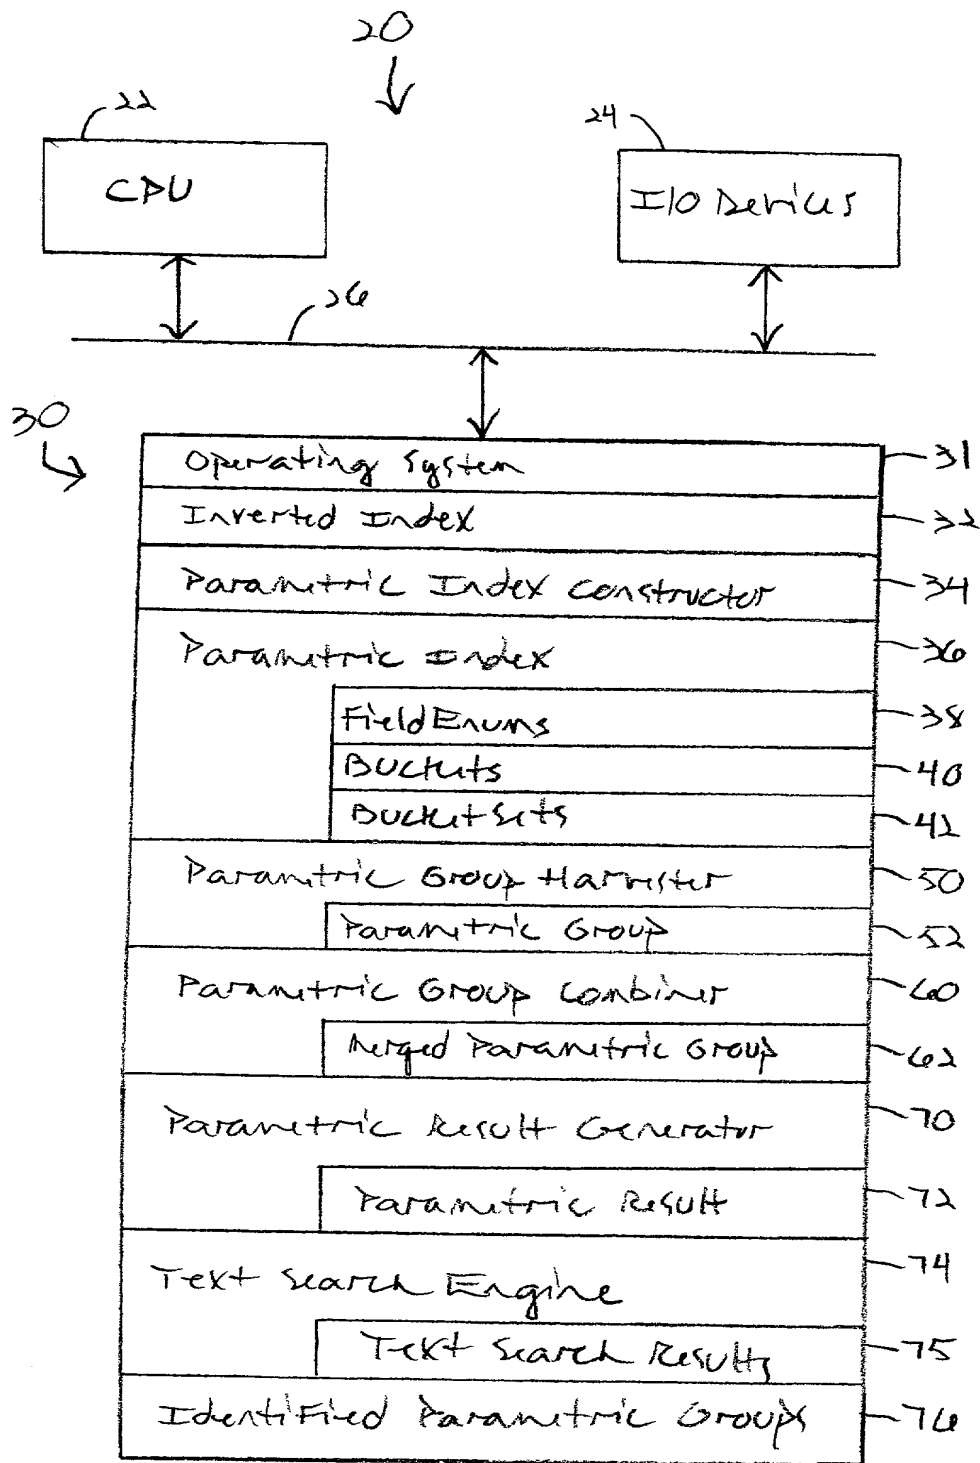 20
22
24
CPU
I/O Devices
26
30
Operating System 31
Inverted Index 32
Parametric Index Constructor 34
Parametric Index 36
FieldEnums 38
Buckets 40
BucketSets 42
Parametric Group Harvester 50
Parametric Group 52
Parametric Group Combiner 60
Merged Parametric Group 62
Parametric Result Generator 70
Parametric Result 72
Text Search Engine 74
Text Search Results 75
Identified Parametric Groups 76